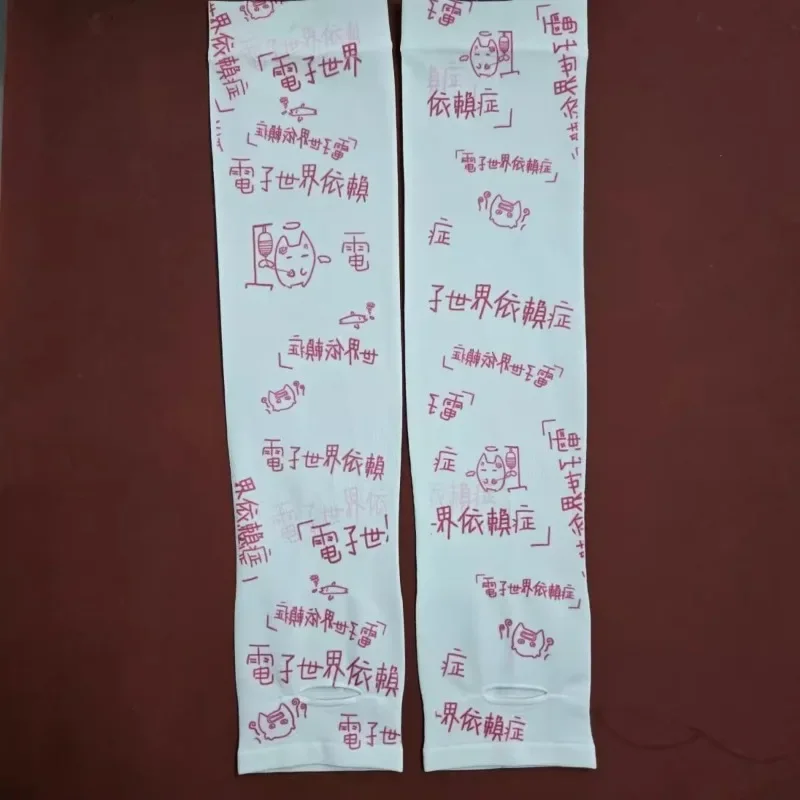 界依賴症」
「電子世界
電子世界依賴症
電子世界依賴
電
世界依賴症」
電子世界依賴
界依賴症
「電子世
電子世界依賴症
電子世界依賴
電子世
電子
依賴症」
「電子世界依賴症」
症
子世界依賴症
電子世界依賴症
電子
症
界依賴症」
「電子世界依賴症」
症
界依賴症